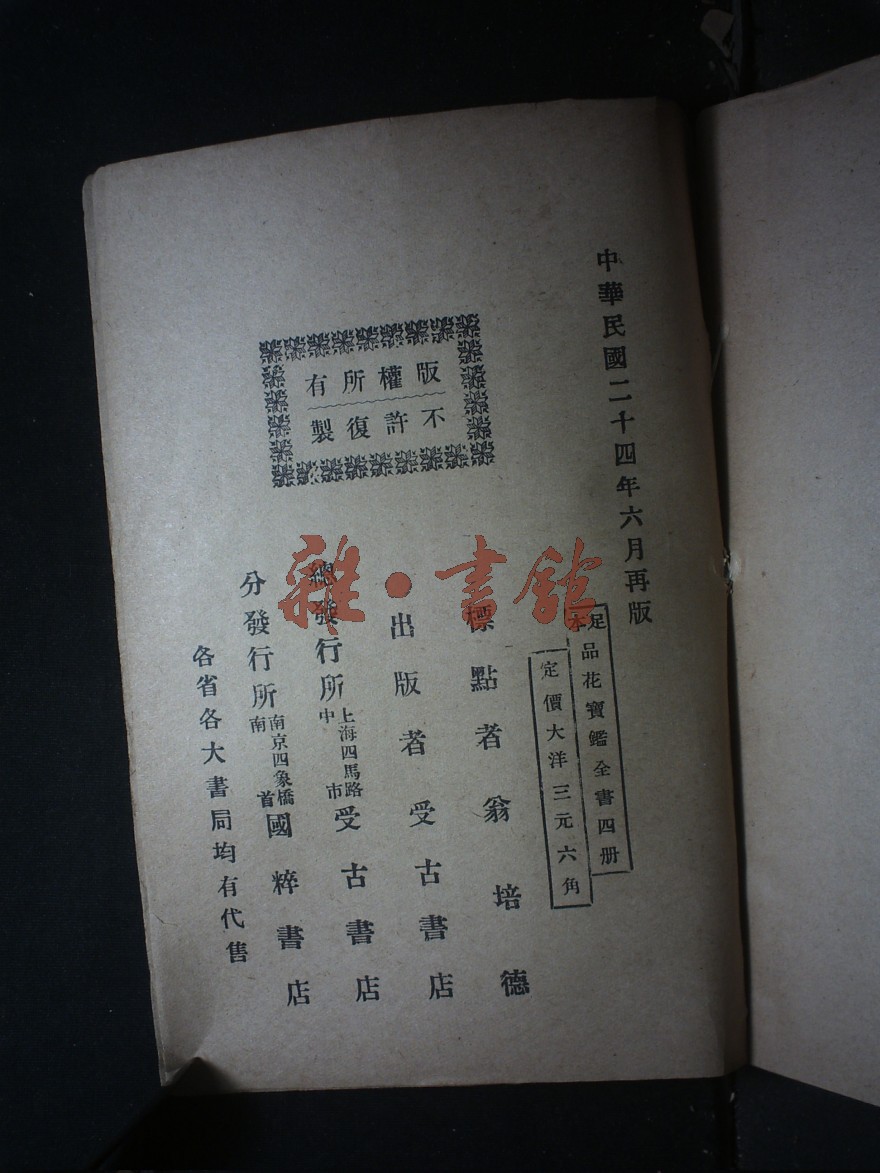 中華民國二十四年六月再版
足本品花寶鑑全書四册
定價大洋三元六角
版權所有
不許復製
標點者翁培德
出版者受古書店
總發行所上海四馬路中市受古書店
分發行所南京四象橋南首國粹書店
各省各大書局均有代售
雜·書館